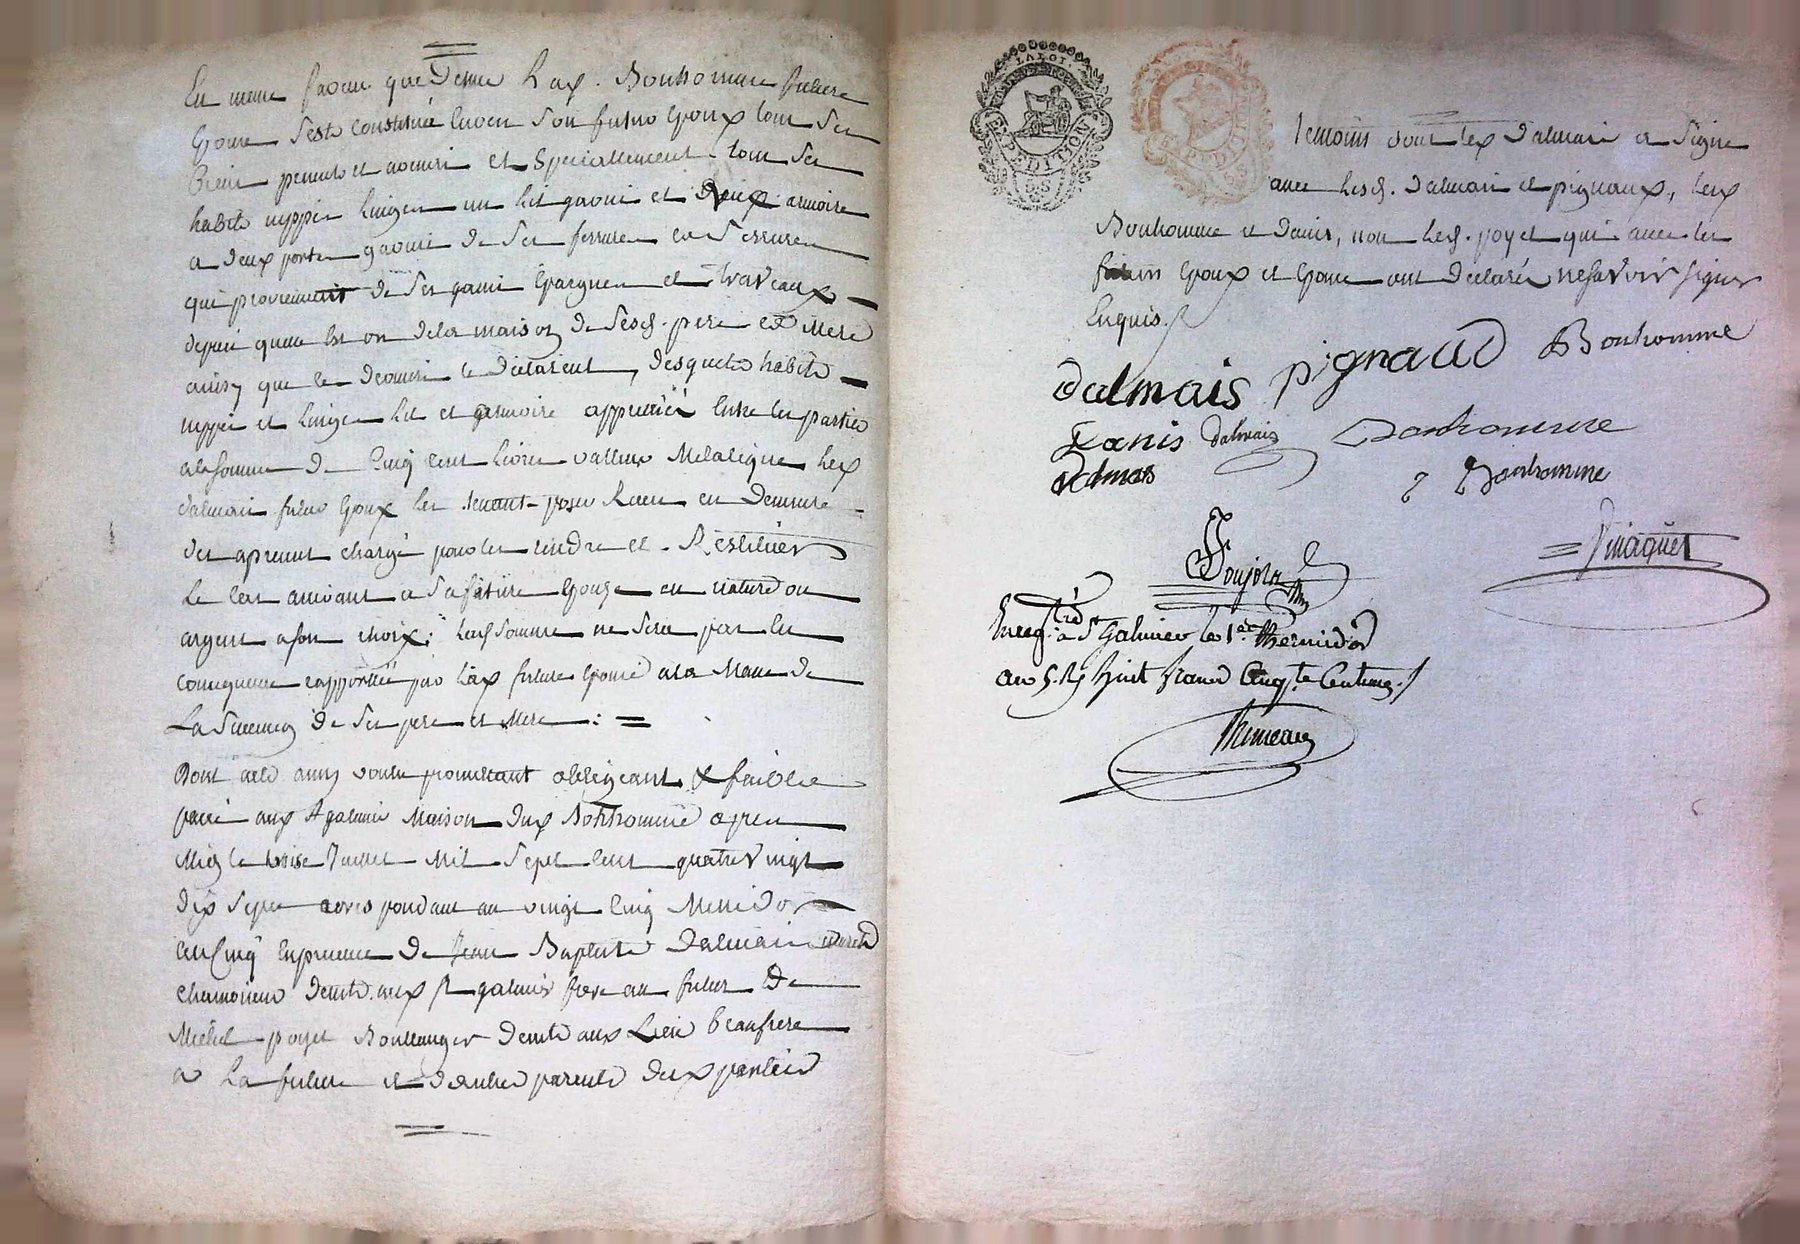 En meme faveur que Dessus Lad. Bonhomme future
Epouse s'est constitué en son futur Epoux tous ses
Biens presents et avenir et specialement tous ses
habits nippes linges un lit garni et armoire
a deux portes garnie de ses ferrures et serrures
qui proviennent de ses gains Epargnes et travaux
depuis quelle est de la maison de sesd. pere et Mere
ainsy que le declarent, desquels habits
nippes et linges lit et armoire appreciés Entre les parties
a la somme de Cinq cent livres valleur Metalique led.
dalmais futur Epoux les tenant pour et demeure
des a present chargé pour les rendre et Restituer
le cas arrivant a sa future Epouse en nature ou
argent a son choix; lad. somme ne sera par
consequence rapportée par lad. future Epouse a la Masse de
La Succession de ses pere et Mere : =
Dont acte ainsy voulu promettant obligeant &
passé aud. St galmier Maison dud. Bonhomme apres
Midy le treise Juillet Mil Sept cent quatre vingt
dix Sept correspondant au vingt Cinq Messidor
an Cinq En presence de Jean Baptiste Dalmais
chamoiseur demt. aud. St galmier frere au futur De
Michel poyet Boullanger demt. aud. Lieu beaufrere
a La future et d'autres parents desd. parties
temoins dont led. dalmais a Signé
avec lesd. dalmais et pignaux, led.
Bonhomme et Janis, non led. poyet qui avec les
futurs Epoux et Epouse ont declaré ne savoir signer
Enquis.
dalmais pignaud Bonhomme
Janis dalmais Bonhomme
dalmas Bonhomme
Pinaquet
Poujols
Enregtré. a St Galmier le 1er. thermidor
an 5. R. huit francs Cinqte. Centimes.
LA LOI.
EXPEDITION
S.S
EXPEDITION